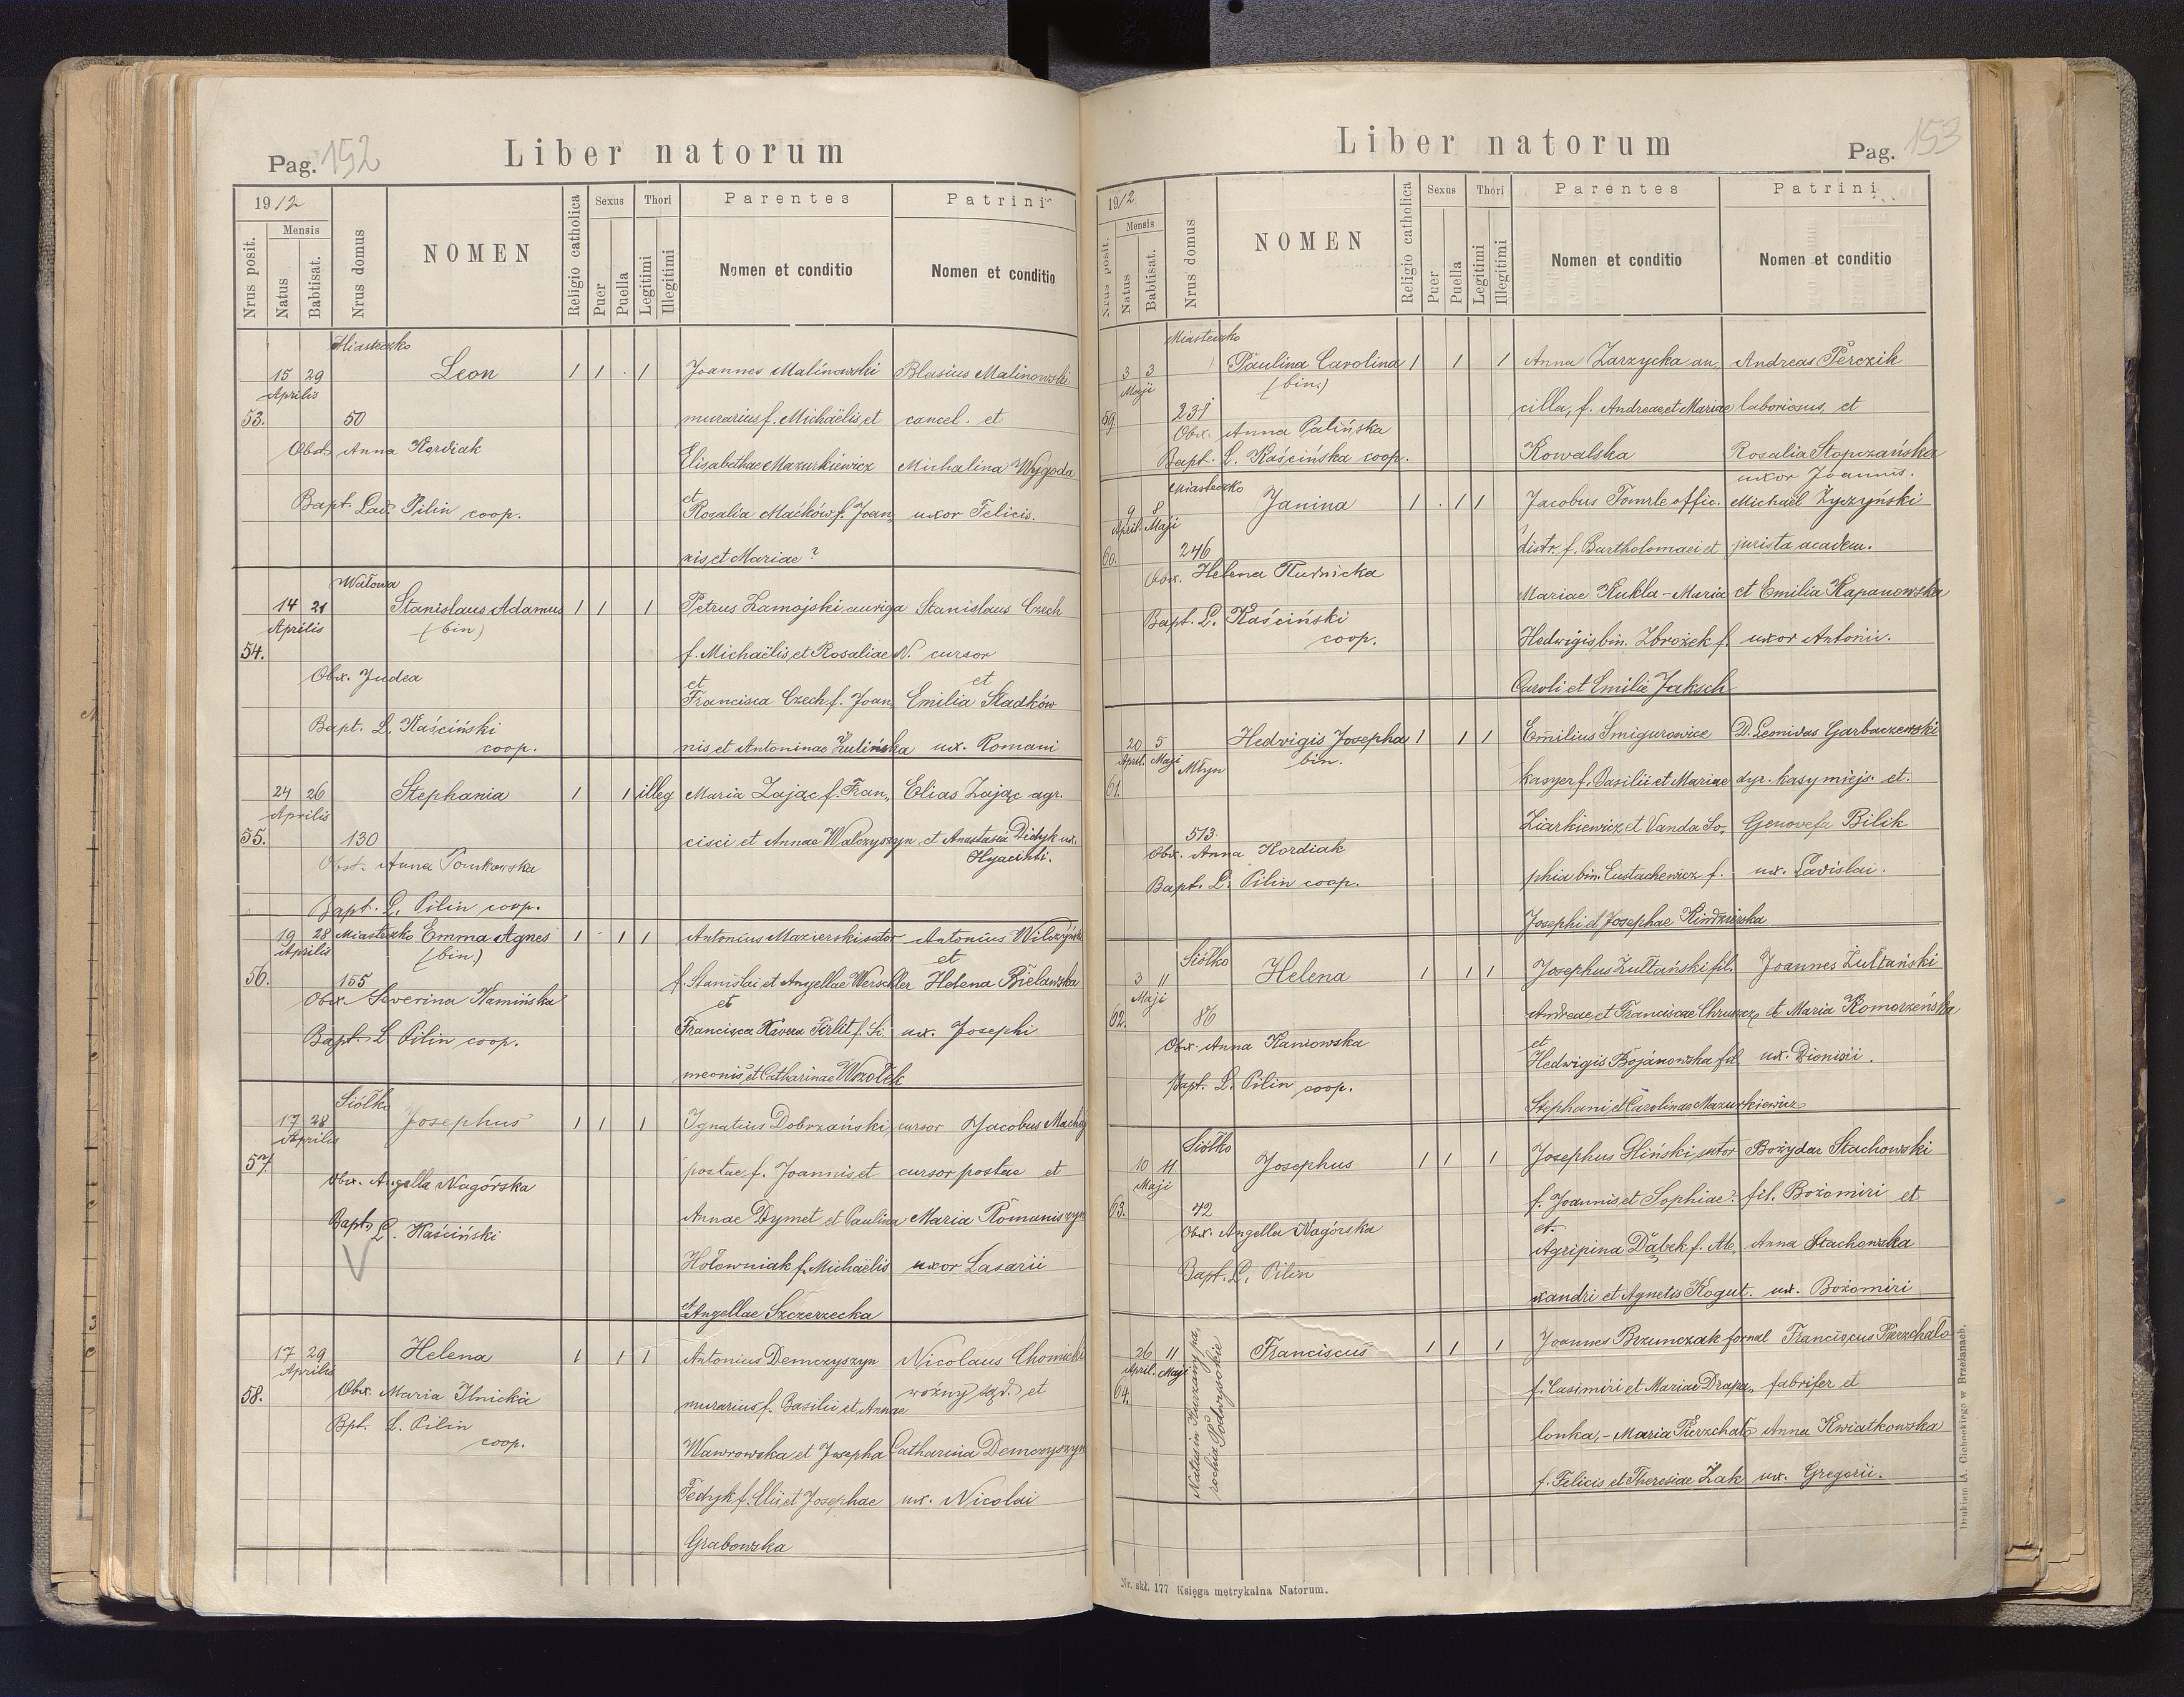 Pag. 152
Liber natorum
1912
Mensis
Nrus posit.
Natus
Babtisat.
Nrus domus
NOMEN
Religio catholica
Sexus
Puer
Puella
Thori
Legitimi
Illegitimi
Parentes
Nomen et conditio
Patrini
Nomen et conditio
Miasteczko
15 29 Leon 1 1 . 1 Joannes Malinowski Blasius Malinowski
Aprilis
53. 50 murarius f. Michaëlis et cancel. et
Obst. Anna Kordiak
Elisabethae Mazurkiewicz Michalina Wygoda
et
Bapt. Lad. Pilin coop. Rosalia Maćków f. Joan, uxor Felicis.
nis, et Mariae ?
Wałowa
14 21 Stanislaus Adamus 1 1 1 Petrus Zamojski auriga Stanislaus Czech
Aprilis (bin)
54. f. Michaëlis et Rosaliae N. cursor
Obx. Judea et et
Francisca Czech f. Joan, Emilia Stadków
Bapt. L. Kaściński
coop. nis et Antoninae Żulińska ux. Romani
24 26 Stephania 1 1 illeg Maria Zając f. Fran, Elias Zając agr.
Aprilis
55. 130 cisci et Annae Walczyszyn et Anastasia Didyk ux.
Hyacinthi.
Obst. Anna Pomkowska
Bapt. L. Pilin coop.
19 28 Miasteczko Emma Agnes 1 - 1 1 Antonius Mazierski sutor Antonius Wilczyński
Aprilis (bin) et
56. 155 f. Stanislai et Angellae Werschler Helena Bielawska
Obx. Severina Kamińska et
Francisca Xavera Tirlit f. Si ux. Josephi
Bapt. L. Pilin coop.
meonis et Catharinae Wrzołek
Siółko
17 28 Josephus 1 1 1 Ignatius Dobrzański cursor Jacobus Machaj
Aprilis
57 postae f. Joannis et cursor postae et
Obx. Angella Nagórska
Annae Dymet et Paulina Maria Romaniszyn
Bapt. L. Kaściński
V Hołowniak f. Michaëlis uxor Lasarii
et Angellae Szczerzecka
17 29 Helena 1 1 1 Antonius Demczyszyn Nicolaus Chomicki
Aprilis
58. Obx. Maria Ilnicka murarius f. Basilii et Annae woźny sąd. et
Bpt. L. Pilin
coop. Wawrowska et Josepha Catharina Demczyszyn
Fedyk f. Elii et Josephae ux. Nicolai
Grabowska
Liber natorum
Pag. 153
1912
Mensis
Nrus posit.
Natus
Babtisat.
Nrus domus
NOMEN
Religio catholica
Sexus
Puer
Puella
Thori
Legitimi
Illegitimi
Parentes
Nomen et conditio
Patrini
Nomen et conditio
Miasteczko
3 3 Paulina Carolina 1 1 1 Anna Zarzycka an, Andreas Perczik
Maji (bin.)
59. 231 cilla, f. Andreae et Mariae laboriosus, et
Obx. Anna Palińska
Bapt. L. Kaścińska coop. Kowalska Rosalia Stopczańska
uxor Joannis.
Miasteczko
9 8 Janina 1 . 1 1 Jacobus Tomrle offic. Michaël Życzyński
April. Maji
60. 246 distr. f. Bartholomaei et jurista academ.
Obx. Helena Rudnicka
Mariae Kukla - Maria et Emilia Kapanowska
Bapt. L. Kaściński
coop. Hedwigis bin. Zbrożek f. uxor Antonii.
Caroli et Emilie Jaksch
20 5 Hedvigis Josepha 1 1 1 Emilius Śmigurowicz D. Leonidas Garbaczewski
April. Maji Młyn bin.
61. kasyer f. Basilii et Mariae dyr. kasy miejs. et.
513 Ziarkiewicz et Vanda So, Genovefa Bilik
Obx. Anna Kordiak
Bapt. L. Pilin coop. phia bin. Eustachewicz f. ux. Ladislai.
Josephi et Josephae Kindzierska
Siółko
3 11 Helena 1 1 1 Josephus Żułtański fil. Joannes Żułtański
Maji
62. 86 Andreae et Franciscae Chruszcz et Maria Komorzeńska
Obx. Anna Kaniowska et
Hedwigis Bojanowska fil ux. Dionisii.
Bapt. L. Pilin coop.
Stephani et Carolinae Mazurkiewicz
Siółko
10 11 Josephus 1 1 1 Josephus Gliński sutor Bożydar Stachowski
Maji
63. 42 f. Joannis et Sophiae? fil. Bożomiri et
Obx. Angella Nagórska et.
Agripina Dąbek f. Ale, Anna Stachowska
Bapt. L. Pilin
xandri et Agnetis Kogut. ux. Bożomiri
26 11 Natus in Kurzany pa, rochia Podwysokie Franciscus 1 1 1 Joannes Brzunczak fornal Franciscus Pierzchało
April. Maji
64. f. Casimiri et Mariae Drapa, fabrifer et
lonka, - Maria Pierzchało Anna Kwiatkowska
f. Felicis et Theresiae Żak ux. Gregorii.
Nr. skł. 177 Księga metrykalna Natorum.
Drukiem A. Cichockiego w Brzeżanach.